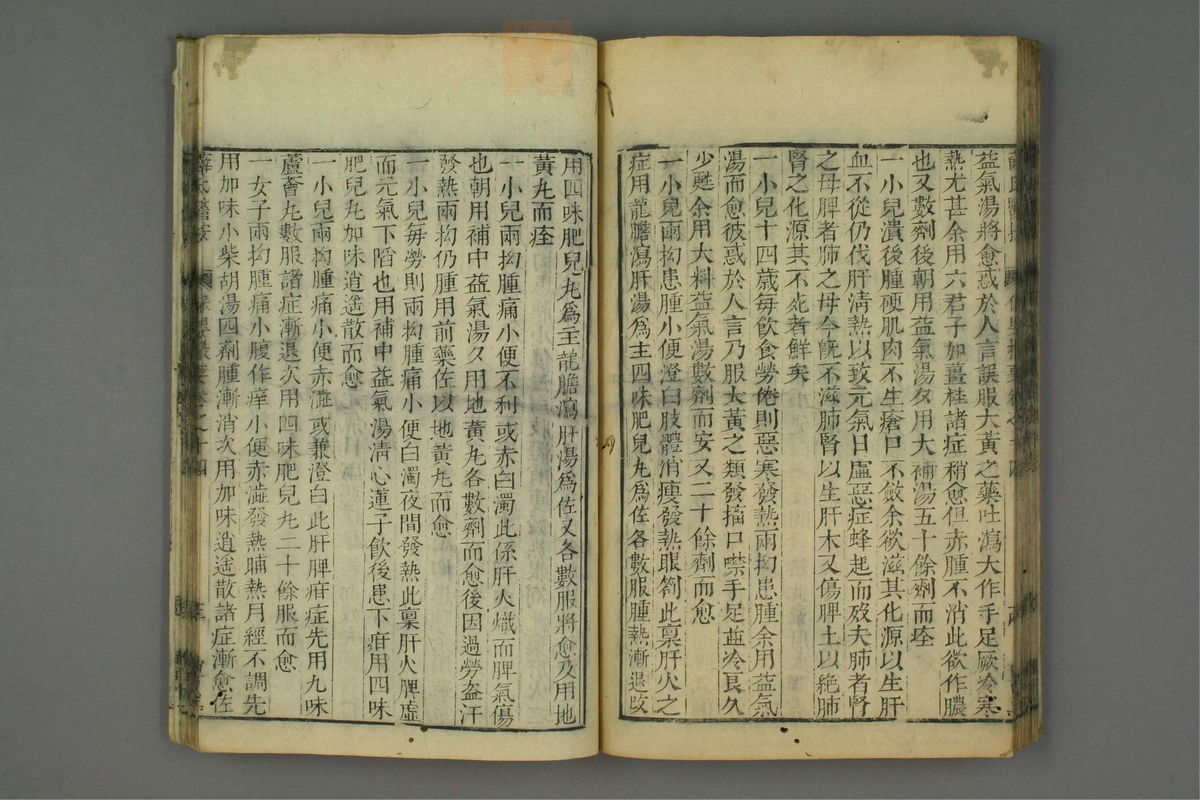 益氣湯將愈惑於人言誤服大黃之藥吐瀉大作手足厥冷寒
熱尤甚余用六君子加薑桂諸症稍愈但赤腫不消此欲作膿
也又數劑後朝用益氣湯夕用大補湯五十餘劑而痊
一小兒潰後腫硬肌肉不生瘡口不斂余欲滋其化源以生肝
血不從仍伐肝清熱以致元氣日虛惡症蜂起而歿夫肺者腎
之母脾者肺之母今既不滋肺腎以生肝木又傷脾土以絕肺
腎之化源其不死者鮮矣
一小兒十四歲每飲食勞倦則惡寒發熱兩拗患腫余用益氣
湯而愈彼惑於人言乃服大黃之類發搐口噤手足並冷良久
少甦余用大料益氣湯數劑而安又二十餘劑而愈
一小兒兩拗患腫小便澄白肢體消瘦發熱眼劄此稟肝火之
症用龍膽瀉肝湯爲主四味肥兒丸爲佐各數服腫熱漸退改
用四味肥兒丸爲主龍膽瀉肝湯爲佐又各數服將愈及用地
黃丸而痊
一小兒兩拗腫痛小便不利或赤白濁此係肝火熾而脾氣傷
也朝用補中益氣湯夕用地黃丸各數劑而愈後因過勞盜汗
發熱兩拗仍腫用前藥佐以地黃丸而愈
一小兒每勞則兩拗腫痛小便白濁夜間發熱此稟肝火脾虛
而元氣下陷也用補中益氣湯清心蓮子飲後患下疳用四味
肥兒丸加味逍遙散而愈
一小兒兩拗腫痛小便赤澁或兼澄白此肝脾疳症先用九味
蘆薈丸數服諸症漸退次用四味肥兒丸二十餘服而愈
一女子兩拗腫痛小腹作痒小便赤澁發熱晡熱月經不調先
用加味小柴胡湯四劑腫漸消次用加味逍遙散諸症漸愈佐
薛氏醫按